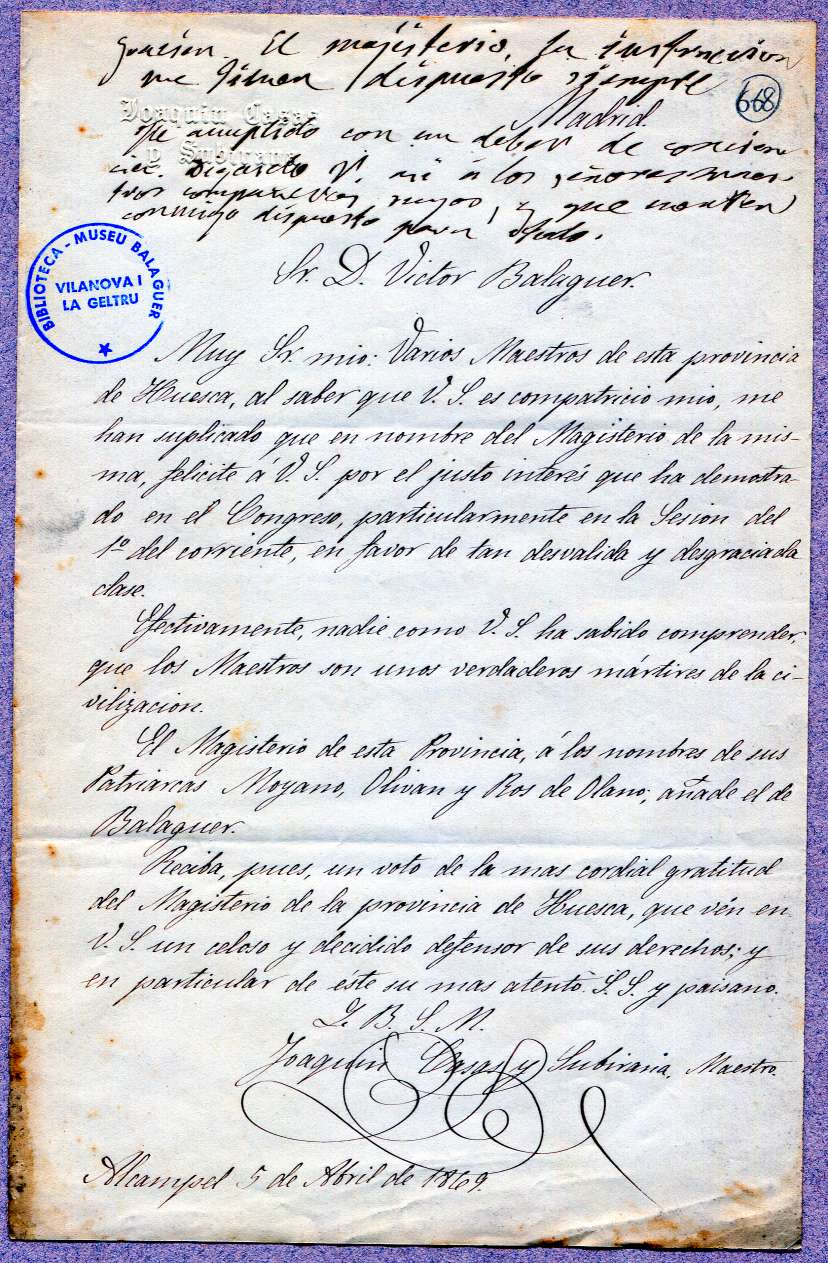 gracias. El magisterio, la instruccion
me tienen dispuesto siempre
668
Joaquin Casas
y Subirana
Madrid.
He cumplido con un deber de concien
cia. Digaselo V. asi á los señores maes-
tros compañeros suyos, y que cuenten
conmigo dispuesto para todo.
BIBLIOTECA - MUSEU BALAGUER
VILANOVA I
LA GELTRU
Sr. D. Victor Balaguer.
Muy Sr. mio: Varios Maestros de esta provincia
de Huesca, al saber que V. S. es compatricio mio, me
han suplicado que en nombre del Magisterio de la mis-
ma, felicite á V. S. por el justo interés que ha demostra
do en el Congreso, particularmente en la Sesion del
1º del corriente, en favor de tan desvalida y desgraciada
clase.
Efectivamente, nadie como V. S. ha sabido comprender,
que los Maestros son unos verdaderos mártires de la ci-
vilizacion.
El Magisterio de esta Provincia, á los nombres de sus
Patriarcas Moyano, Olivan y Ros de Olano; añade el de
Balaguer.
Reciba, pues, un voto de la mas cordial gratitud
del Magisterio de la provincia de Huesca, que vén en
V. S. un celoso y decidido defensor de sus derechos; y
en particular de éste su mas atento S. S. y paisano.
Q. B. S. M.
Joaquin Casas y Subirana, Maestro.
Alcampel 5 de Abril de 1869.